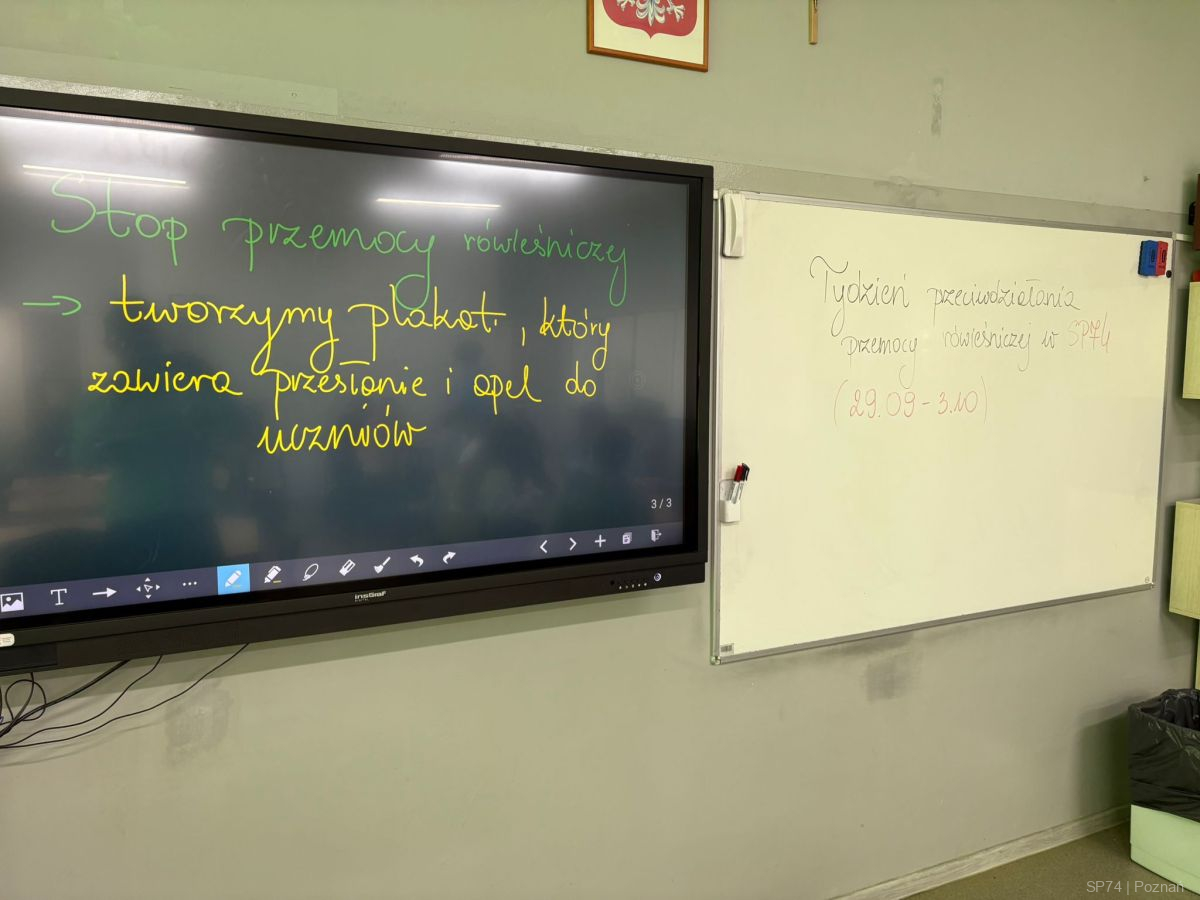 Stop przemocy rówieśniczej
→ tworzymy plakat, który
zawiera przesłanie i apel do
uczniów
3 / 3
T
insGraf
DIGITAL
Tydzień przeciwdziałania
przemocy rówieśniczej w SP74
(29.09 - 3.10)
SP74 | Poznań